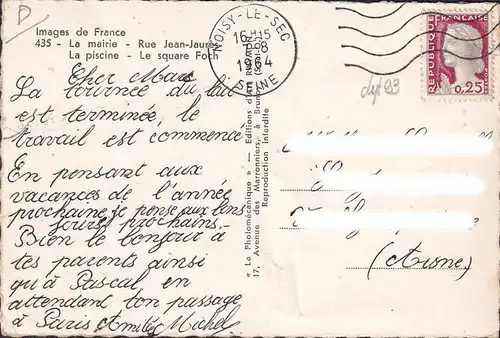 D
Images de France
435 - La mairie - Rue Jean-Jaurès
La piscine - Le square Foch
Cher Marc
La tournée du lait
est terminée, le
travail est commencé
En pensant aux
vacances de l'année
prochaine je pense aux bons
jours prochains.
Bien le bonjour à
tes parents ainsi
qu'à Pascal, en
attendant ton passage
à Paris Amitiés Michel
« La Photomécanique » — Editions d'art
17, Avenue des Marronniers, à Brunoy
Reproduction interdite
NOISY-LE-SEC
16H15
8
1964
SEINE
REPUBLIQUE
FRANÇAISE
0,25
dy/93
(Aisne)